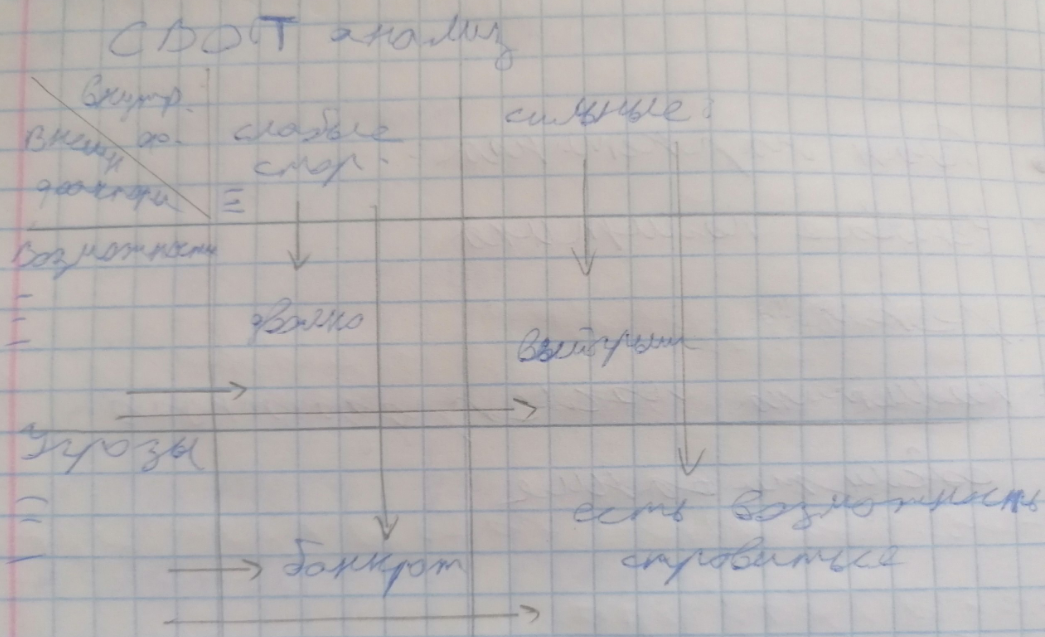 СВОТ анализ
внутр.
внешн фо.
факторы
слабые
стор.
сильные
возможности
выигрыш
Угрозы
банкрот
есть возможность